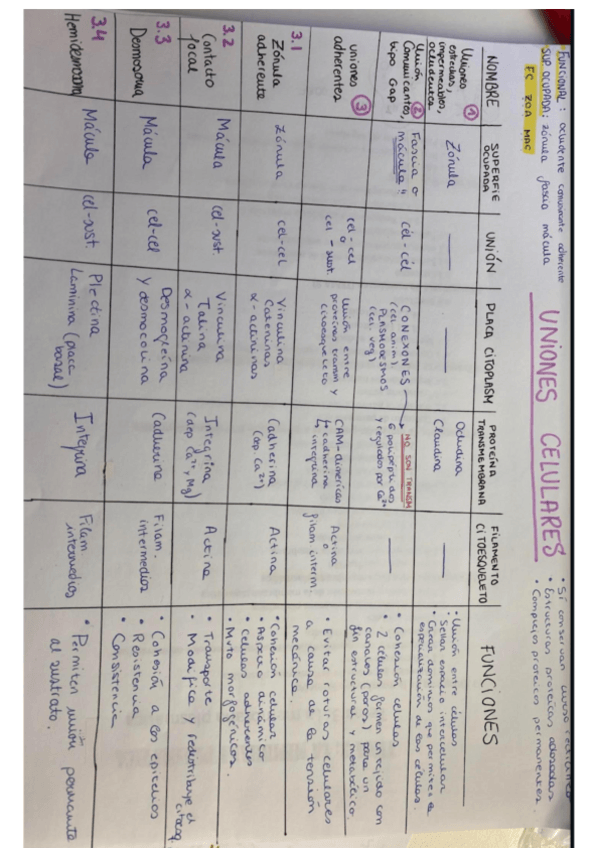 FUNCIONAL: ocludente comunicante adherente
SUP. OCUPADA: zónula fascia mácula
FC ZOA MAC
UNIONES CELULARES
• Sí conservan
• Estructuras proteicas adosadas
• Complejos proteicos permanentes.
NOMBRE
SUPERFIE OCUPADA
UNIÓN
PLACA CITOPLASM
PROTEÍNA TRANSMEMBRANA
FILAMENTO CITOESQUELETO
FUNCIONES
① Uniones estrechas, impermeables, ocludentes
Zónula
Ocludina
Claudina
• Unión entre células
• Sellar espacio intercelular
• Crear dominios que permiten la
especialización de las células.
② Unión Comunicantes, tipo Gap
Fascia o mácula
cél - cél
CONEXONES
(cel. anim)
PLASMODESMOS
(cel. veg)
NO SON TRANSM
6 polipéptidos
y regulados por Ca²⁺
• Cohesión células
• 2 células formen un tejido con
canales (poros) para un
fin estructural y metabólico.
③ uniones adherentes
cél - cél
o
cél - sust.
Unión entre
proteínas transm y
citoesqueleto
CAM-diméricas
cadherina
integrina
Actina
o
filam interm.
• Evitar roturas celulares
a causa de la tensión
mecánica.
3.1
Zónula adherente
Zónula
cel-cel
Vinculina
Cateninas
α-actininas
Cadherina
(dep. Ca²⁺)
Actina
• Cohesión celular
• Aspecto dinámico
• células adherentes
• Mvto morfogénicos.
3.2
Contacto focal
Mácula
cel-sust
Vinculina
Talina
α-actinina
Integrina
(dep Ca²⁺ y Mg)
Actina
• Transporte
• Modifica y redistribuye el citoesq
3.3
Desmosoma
Mácula
cel-cel
Desmogleína
y desmocolina
Cadherina
Filam.
intermedios
• Cohesión a los epitelios
• Resistencia
• Consistencia
3.4
Hemidesmosoma
Mácula
cel-sust.
Plectina
Laminina (placa
basal)
Integrina
Filam
intermedios
• Permiten unión permanente
al sustrato.